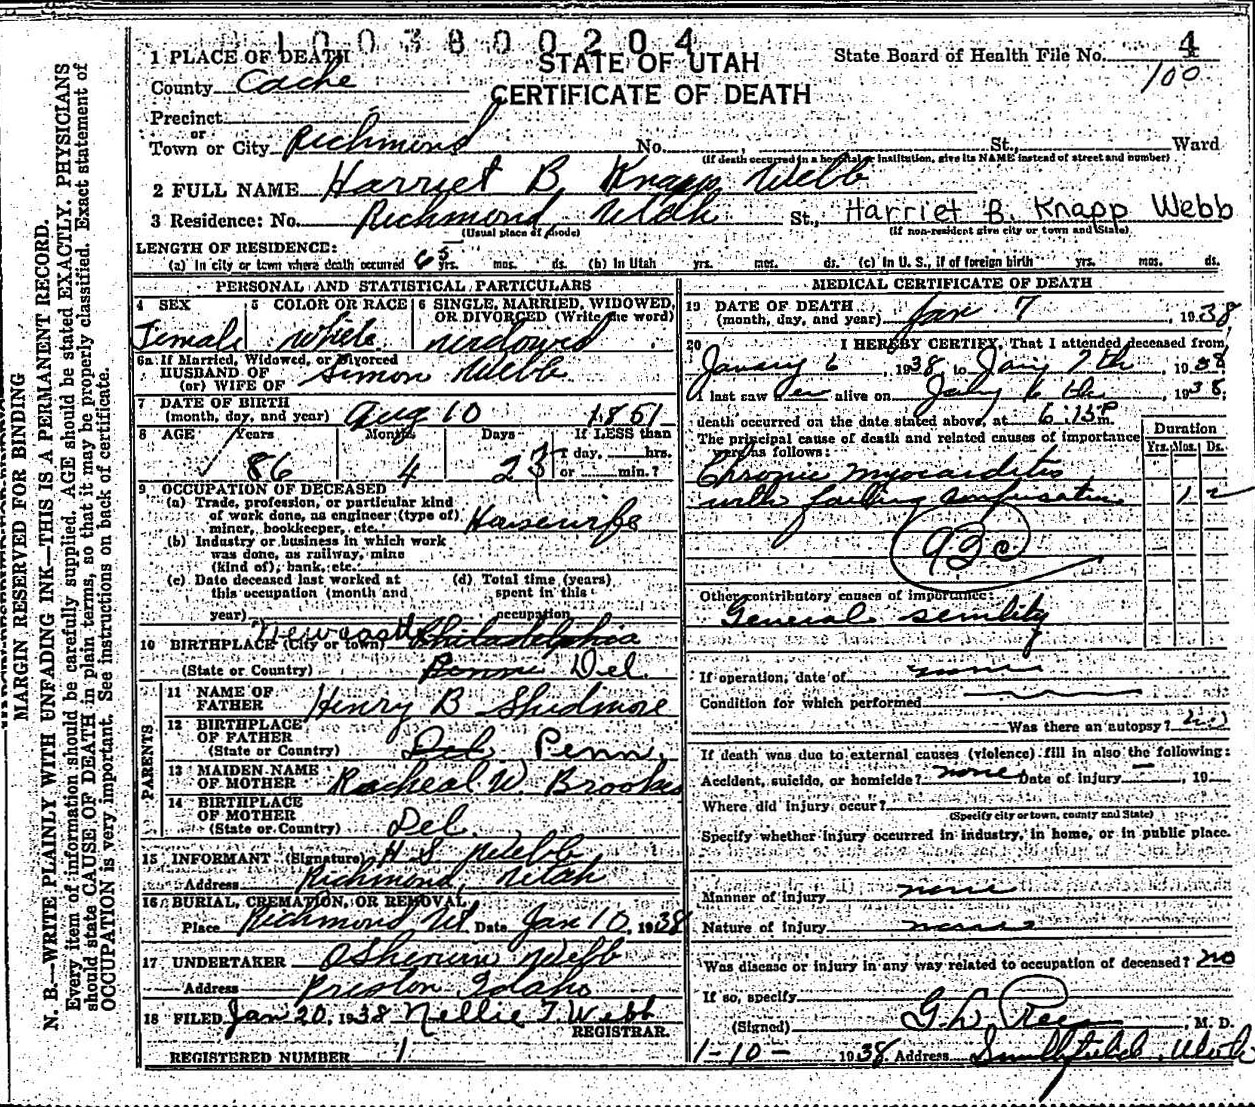 0 1 0 0 3 8 0 0 2 0 4
1 PLACE OF DEATH
STATE OF UTAH
CERTIFICATE OF DEATH
State Board of Health File No. 4
100
County Cache
Precinct
or
Town or City Richmond No. , St., Ward
(If death occurred in a hospital or institution, give its NAME instead of street and number)
2 FULL NAME Harriet B. Knapp Webb
3 Residence: No. Richmond Utah St., Harriet B. Knapp Webb
(Usual place of abode) (If non-resident give city or town and State)
LENGTH OF RESIDENCE:
(a) In city or town where death occurred 65 yrs. mos. ds. (b) In Utah yrs. mos. ds. (c) In U. S., if of foreign birth yrs. mos. ds.
PERSONAL AND STATISTICAL PARTICULARS
4 SEX
Female
5 COLOR OR RACE
White
6 SINGLE, MARRIED, WIDOWED, OR DIVORCED (Write the word)
widowed
6a If Married, Widowed, or Divorced
HUSBAND OF
(or) WIFE OF Simon Webb
7 DATE OF BIRTH
(month, day, and year) Aug 10 1851
8 AGE Years Months Days If LESS than
1 day, hrs.
86 4 2 or min.?
9 OCCUPATION OF DECEASED
(a) Trade, profession, or particular kind
of work done, as engineer (type of)
miner, bookkeeper, etc. Housewife
(b) Industry or business in which work
was done, as railway, mine
(kind of), bank, etc.
(c) Date deceased last worked at
this occupation (month and
year)
(d) Total time (years)
spent in this
occupation
10 BIRTHPLACE (City or town) Newcastle Philadelphia
(State or Country) Penn Del
PARENTS
11 NAME OF
FATHER Henry B Skidmore
12 BIRTHPLACE
OF FATHER
(State or Country) Del Penn.
13 MAIDEN NAME
OF MOTHER Racheal W. Brookes
14 BIRTHPLACE
OF MOTHER
(State or Country) Del.
15 INFORMANT (Signature) H S Webb
Address Richmond, Utah
16 BURIAL, CREMATION, OR REMOVAL
Place Richmond Ut Date Jan 10, 1938
17 UNDERTAKER Webb
Address Preston Idaho
18 FILED Jan 20, 1938 Nellie T. Webb
REGISTRAR.
REGISTERED NUMBER 1
MEDICAL CERTIFICATE OF DEATH
19 DATE OF DEATH
(month, day, and year) Jan 7, 1938
20 I HEREBY CERTIFY, That I attended deceased from
January 6, 1938, to Jany 7th, 1938
I last saw her alive on Jany 6 th, 1938,
death occurred on the date stated above, at 6:15 P m.
The principal cause of death and related causes of importance
were as follows:
Duration
Yrs. Mos. Ds.
Chronic myocarditis
with failing compensation 1 2
93c
Other contributory causes of importance:
General senility
If operation, date of none
Condition for which performed
Was there an autopsy? no
If death was due to external causes (violence) fill in also the following:
Accident, suicide, or homicide? none Date of injury , 19
Where did injury occur?
(Specify city or town, county and State)
Specify whether injury occurred in industry, in home, or in public place.
Manner of injury none
Nature of injury none
Was disease or injury in any way related to occupation of deceased? no
If so, specify
(Signed) G. L. Rees, M. D.
1-10- 1938 Address Smithfield, Utah
MARGIN RESERVED FOR BINDING
N. B.—WRITE PLAINLY WITH UNFADING INK—THIS IS A PERMANENT RECORD.
Every item of information should be carefully supplied. AGE should be stated EXACTLY. PHYSICIANS
should state CAUSE OF DEATH in plain terms, so that it may be properly classified. Exact statement of
OCCUPATION is very important. See instructions on back of certificate.